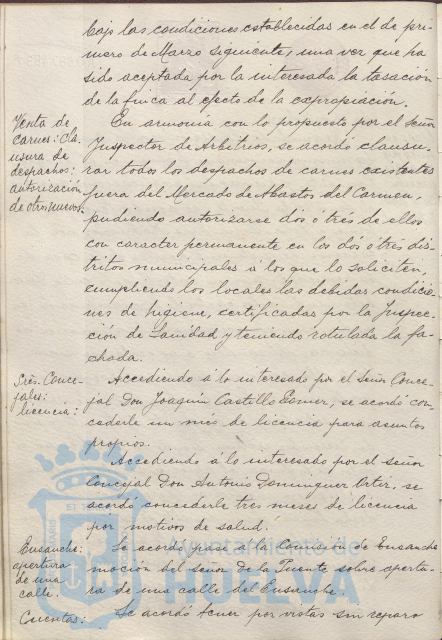 bajo las condiciones establecidas en el de pri-
mero de Marzo siguiente, una vez que ha
sido aceptada por la interesada la tasación
de la finca al efecto de la expropiación.
Venta de
carnes: Clau
sura de
despachos:
autorización
de otros nuevos.
En armonía con lo propuesto por el señor
Inspector de Arbitrios, se acordó clausu-
rar todos los despachos de carnes existentes
fuera del Mercado de Abastos del Carmen,
pudiendo autorizarse dos ó tres de ellos
con caracter permanente en los dos ó tres dis-
tritos municipales á los que lo soliciten,
cumpliendo los locales las debidas condicio-
nes de higiene, certificadas por la Inspec-
ción de Sanidad y teniendo rotulada la fa-
chada.
Sres. Conce-
jales:
licencia:
Accediendo á lo interesado por el Señor Conce-
jal Don Joaquín Castillo, se acordó con-
cederle un mes de licencia para asuntos
propios.
Accediendo á lo interesado por el señor
Concejal Don Antonio Dominguez Ortiz, se
acordó concederle tres meses de licencia
por motivos de salud.
Ensanche:
apertura
de una
calle.
Se acordó pase á la Comisión de Ensanche
moción del señor de la Puente sobre apertu-
ra de una calle del Ensanche.
Cuentas:
Se acordó tener por vistas sin reparo
Ayuntamiento de
HUELVA